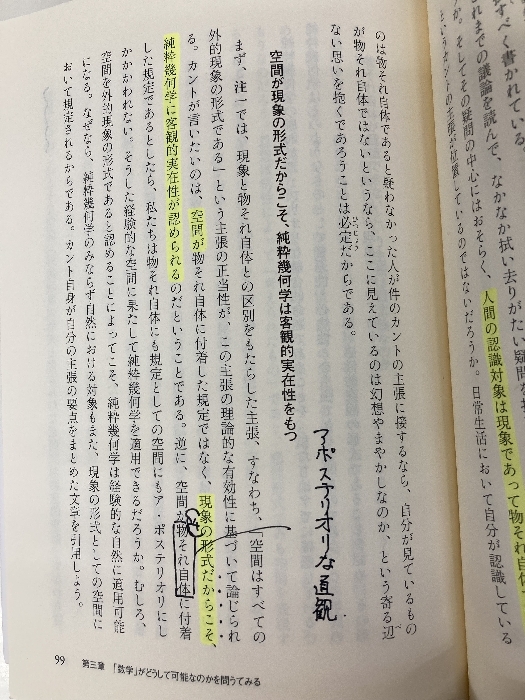 すべく書かれている。
これまでの議論を読んで、なかなか拭い去りがたい疑問を
そしてその疑問の中心にはおそらく、人間の認識対象は現象であって物それ自体で
というカントの主張が位置しているのではないだろうか。日常生活において自分が認識している
のは物それ自体であると疑わなかった人が件のカントの主張に接するなら、自分が見ているもの
が物それ自体ではないというなら、ここに見えているのは幻想やまやかしなのか、という寄る辺
ない思いを抱くであろうことは必定だからである。
アポステリオリな直観
空間が現象の形式だからこそ、純粋幾何学は客観的実在性をもつ
まず、注一では、現象と物それ自体との区別をもたらした主張、すなわち、「空間はすべての
外的現象の形式である」という主張の正当性が、この主張の理論的な有効性に基づいて論じられ
る。カントが言いたいのは、空間が物それ自体に付着した規定ではなく、現象の形式だからこそ、
純粋幾何学に客観的実在性が認められるのだということである。逆に、空間が物それ自体に付着
した規定であるとしたら、私たちは物それ自体にも規定としての空間にもア・ポステリオリにし
かかかわれない。そうした経験的な空間に果たして純粋幾何学を適用できるだろうか。むしろ、
空間を外的現象の形式であると認めることによってこそ、純粋幾何学は経験的な自然に適用可能
になる。なぜなら、純粋幾何学のみならず自然における対象もまた、現象の形式としての空間に
おいて規定されるからである。カント自身が自分の主張の要点をまとめた文章を引用しよう。
99 第三章 「数学」がどうして可能なのかを問うてみる